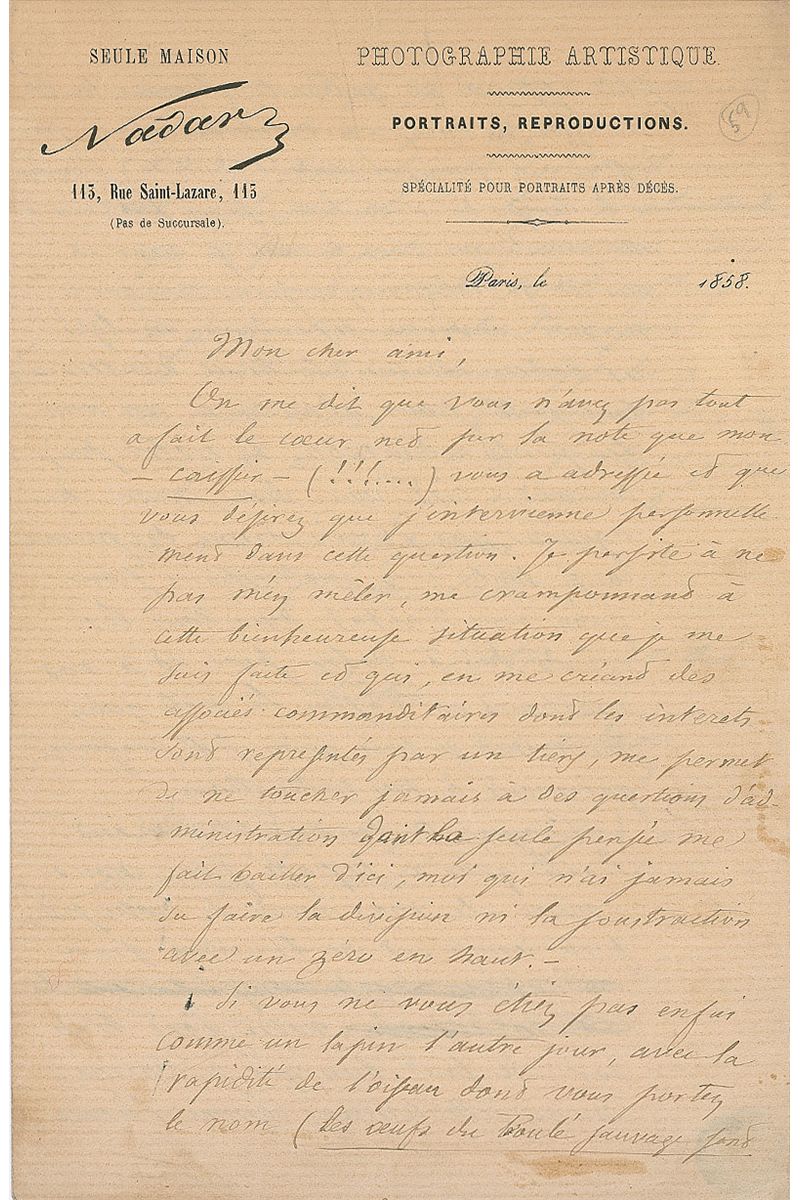 SEULE MAISON
Nadar
113, Rue Saint-Lazare, 113
(Pas de Succursale).
PHOTOGRAPHIE ARTISTIQUE.
PORTRAITS, REPRODUCTIONS.
SPÉCIALITÉ POUR PORTRAITS APRÈS DÉCÈS.
59
Paris, le 1858.
Mon cher ami,
On me dit que vous n'avez pas tout
a fait le cœur net sur la note que mon
– caissier – (!!!....) vous a adressée et que
vous désirez que j'intervienne personnelle
ment dans cette question. Je persiste à ne
pas m'en mêler, me cramponnant à
cette bienheureuse situation que je me
suis faite et qui, en me créant des
associés commanditaires dont les interets
sont representés par un tiers, me permet
de ne toucher jamais à des questions d'ad-
ministration dont la seule pensée me
fait bailler d'ici, moi qui n'ai jamais
su faire la division ni la soustraction
avec un zéro en haut. –
Si vous ne vous étiez pas enfui
comme un lapin l'autre jour, avec la
rapidité de l'oiseau dont vous portez
le nom (les œufs du Poulé sauvage sont